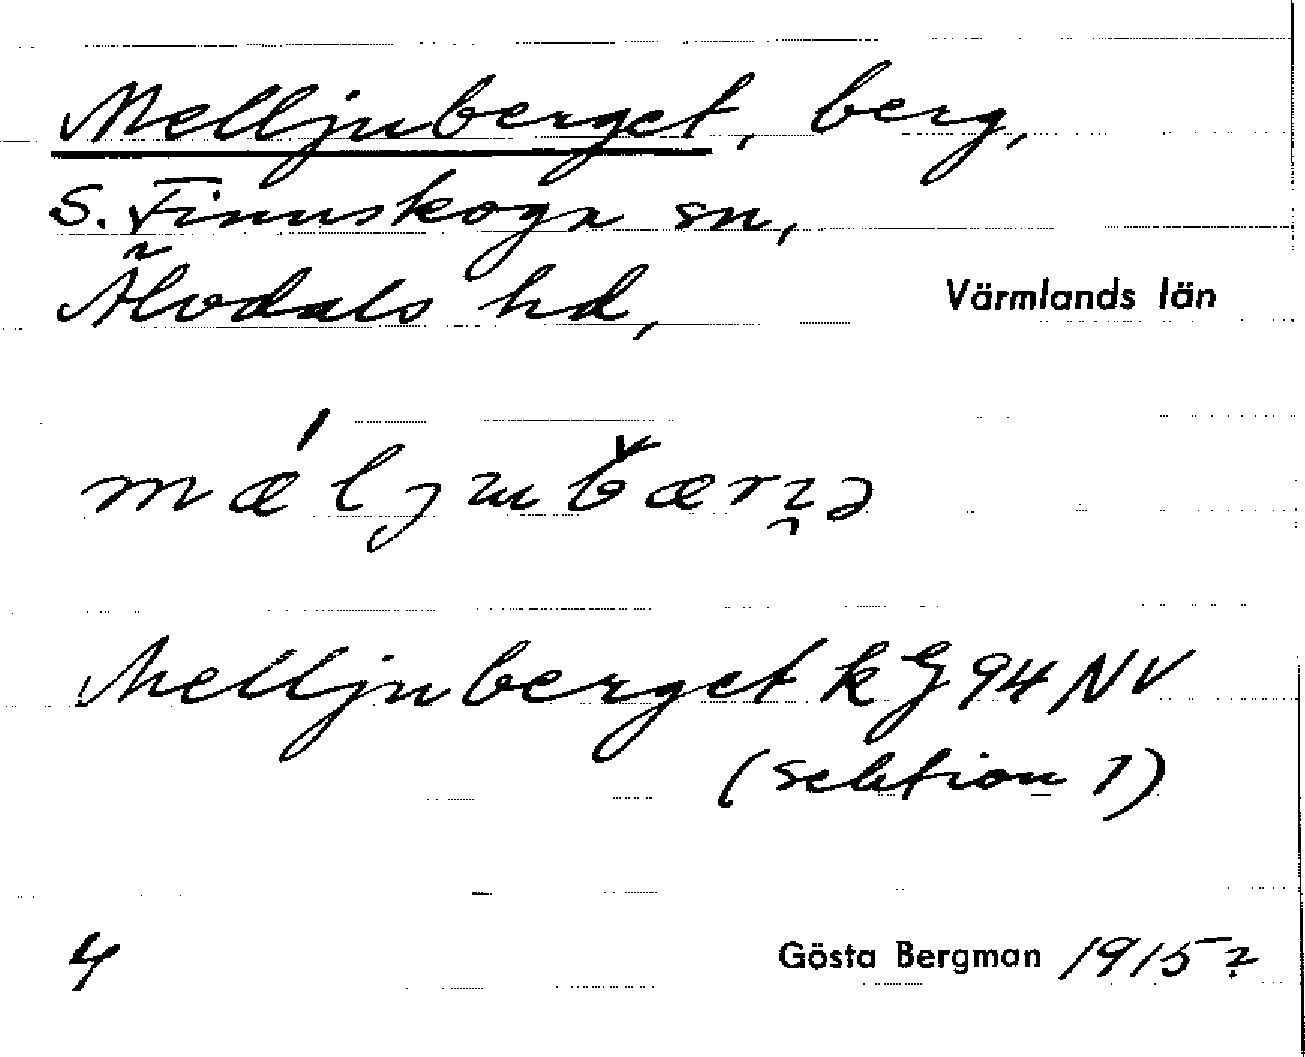 Melljuberget, berg,
S. Finnskoga sn,
Älvdals hd,
Värmlands län
Melljuberget kG 94 NV
(sektion 1)
4
Gösta Bergman 1952